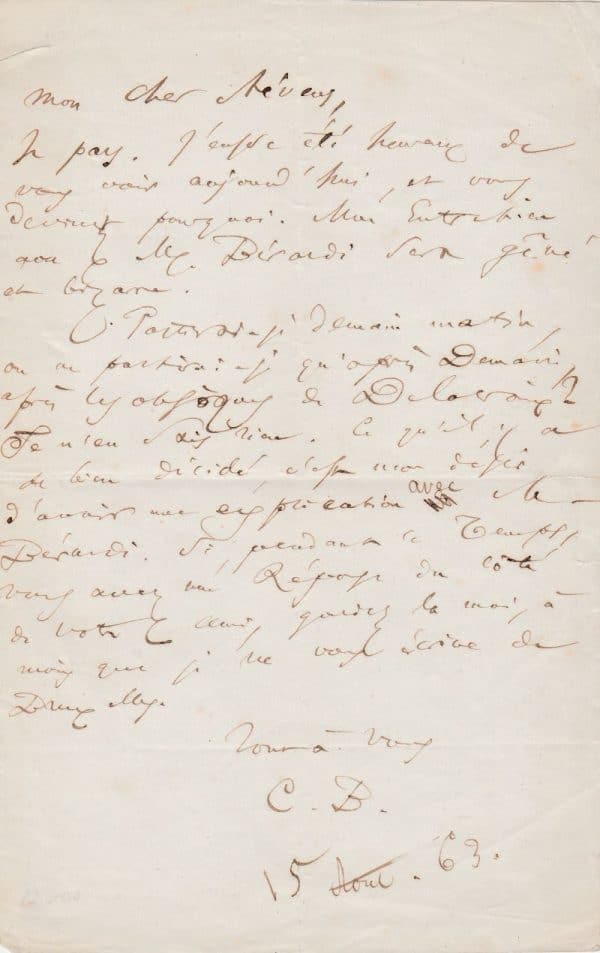 Mon cher Stévens,
Je pars. J'eusse été heureux de
vous voir aujourd'hui, et vous
devinez pourquoi. Mon Entretien
avec M. Bérardi sera gêné
et bizarre.
Partirai-je demain matin,
ou ne partirai-je qu'après Demain,
après les obsèques de Delacroix?
Je n'en sais rien. Ce qu'il y a
de bien décidé, c'est mon désir
d'avoir une explication avec M
Bérardi. Si, pendant ce Temps,
vous avez une Réponse du côté
de votre ami, gardez la moi, à
moins que je ne vous écrive de
Bruxelles.
Tout à vous
C. B.
15 Août. 63.